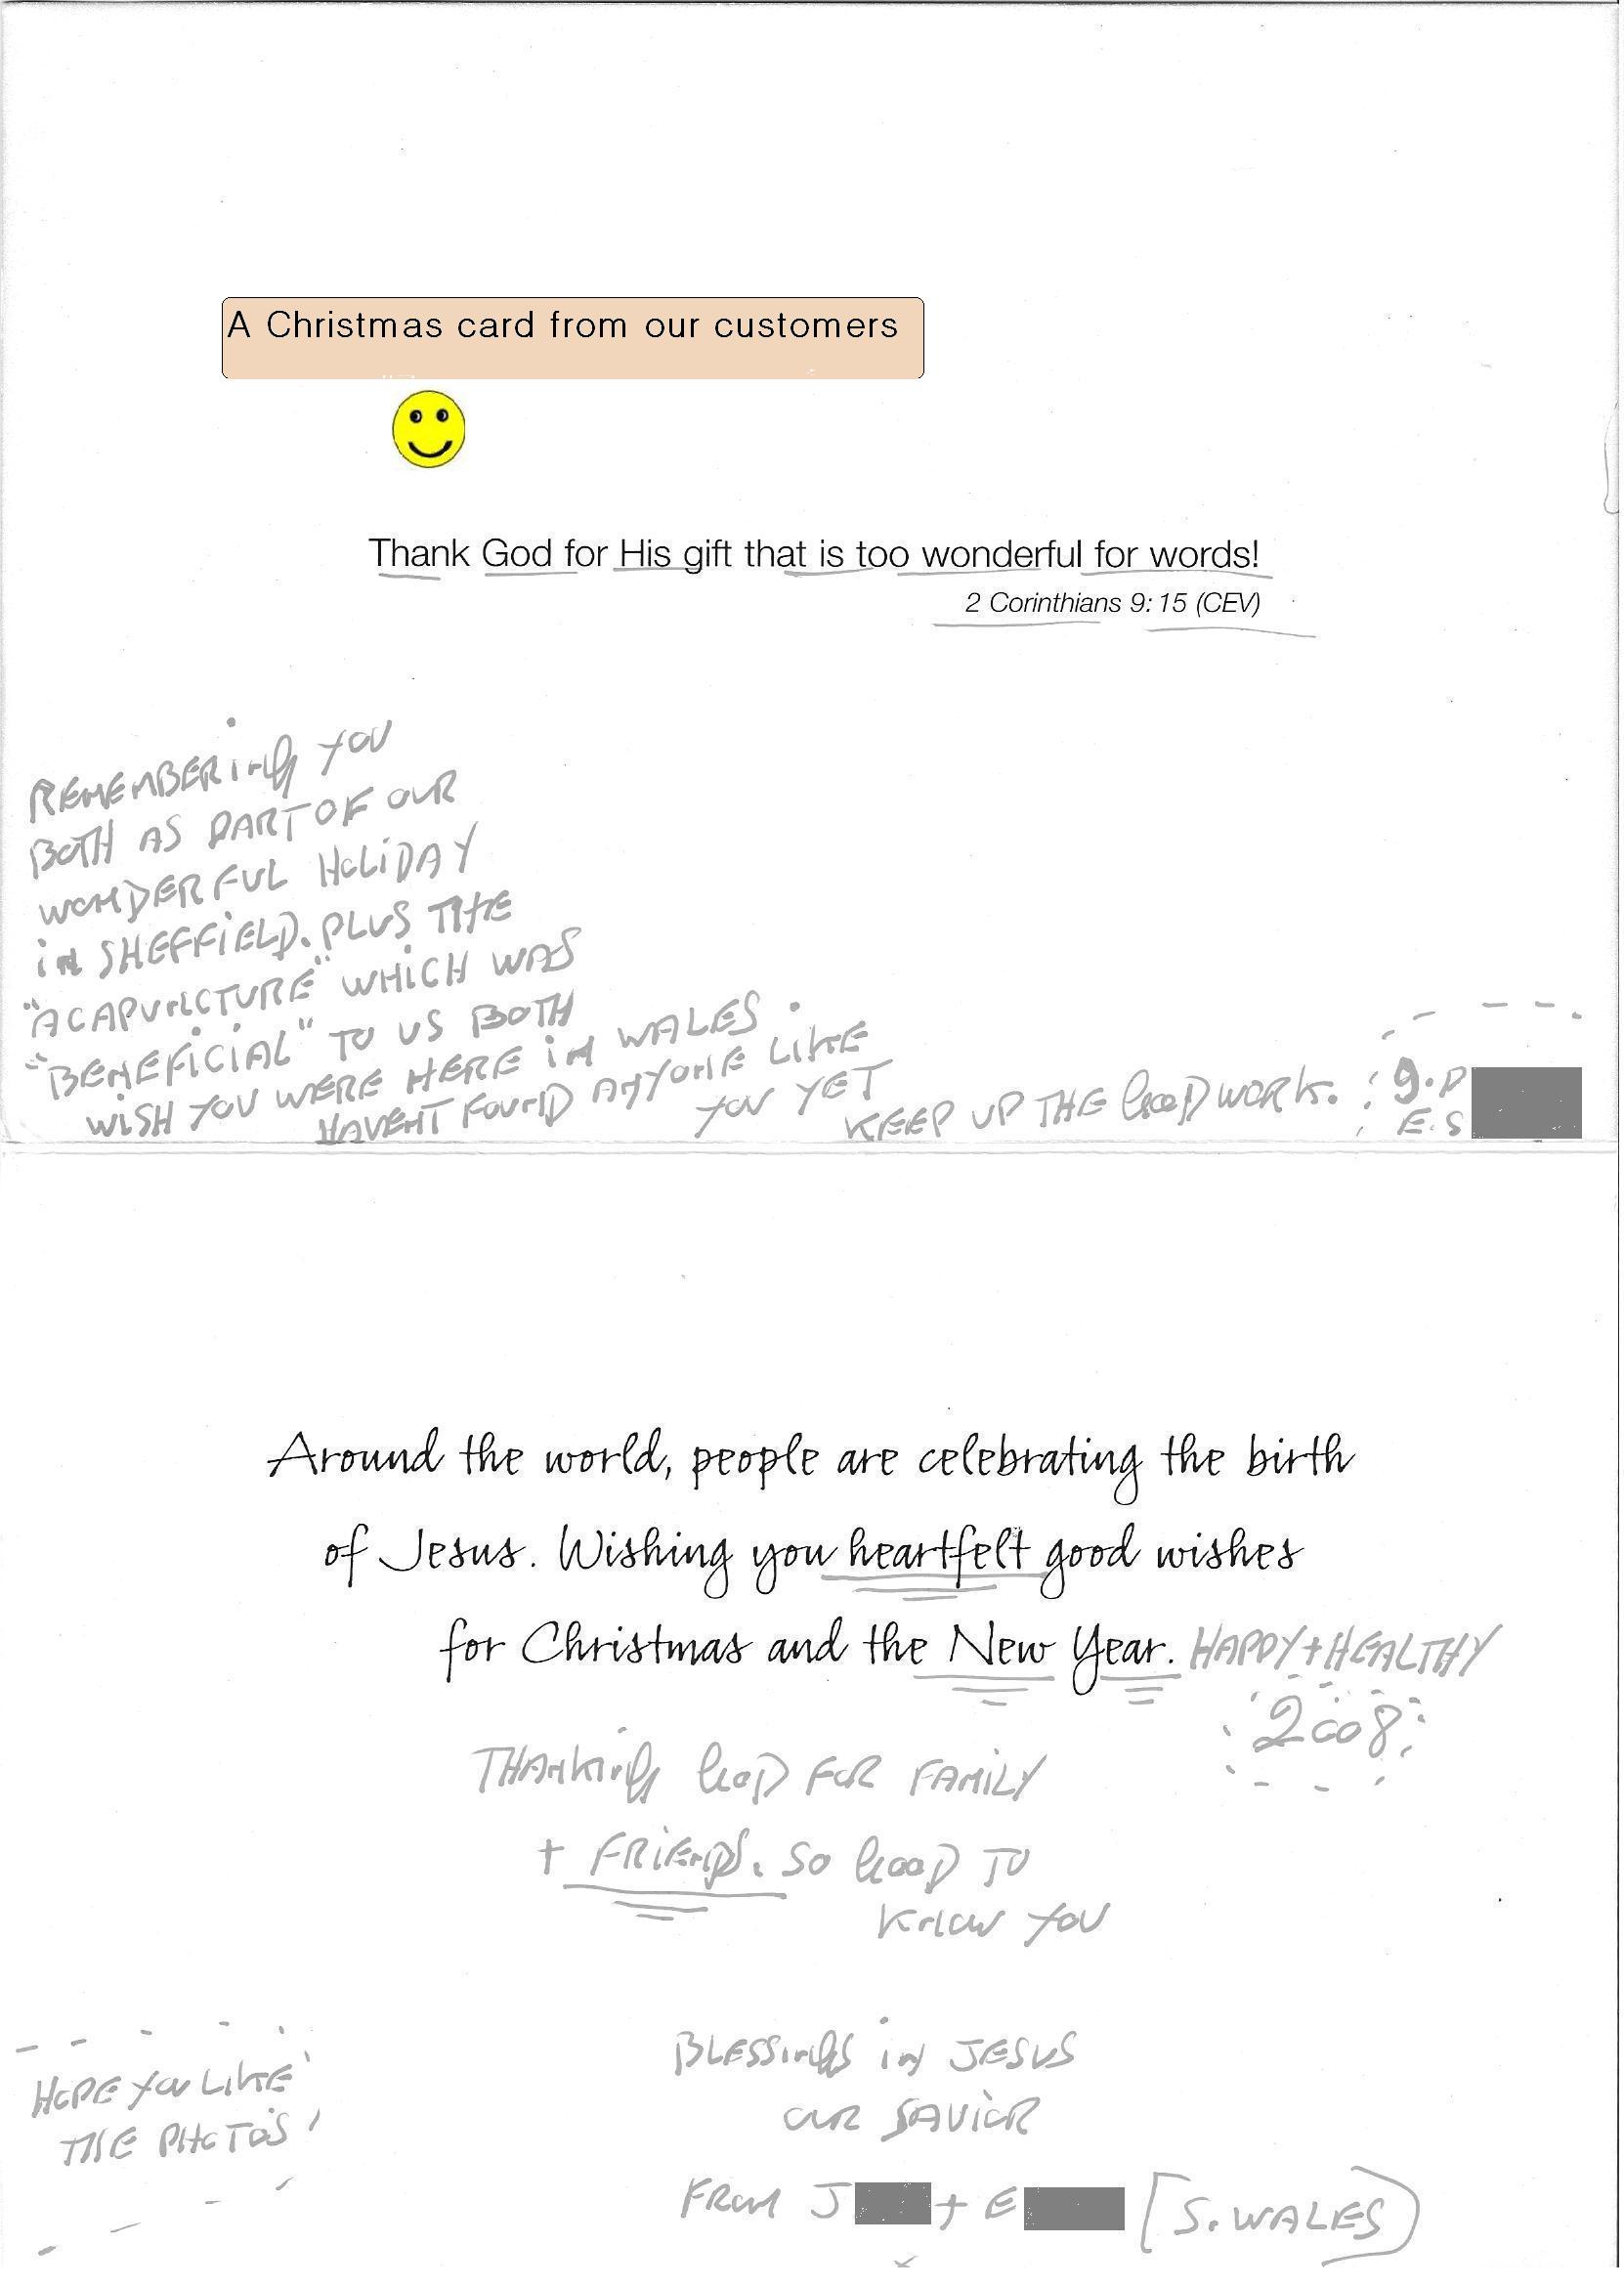 A Christmas card from our customers
Thank God for His gift that is too wonderful for words!
2 Corinthians 9:15 (CEV)
REMEMBERING YOU
BOTH AS PART OF OUR
WONDERFUL HOLIDAY
IN SHEFFIELD. PLUS THE
"ACAPUNCTURE" WHICH WAS
"BENEFICIAL" TO US BOTH
WISH YOU WERE HERE IN WALES.
HAVENT FOUND ANYONE LIKE
YOU YET
KEEP UP THE GOOD WORK.
E.S
Around the world, people are celebrating the birth
of Jesus. Wishing you heartfelt good wishes
for Christmas and the New Year. HAPPY + HEALTHY
2008
THANKING GOD FOR FAMILY
+ FRIENDS. SO GOOD TO
KNOW YOU
HOPE YOU LIKE
THE PHOTO'S
BLESSINGS IN JESUS
OUR SAVIOR
FROM J + E [S. WALES]